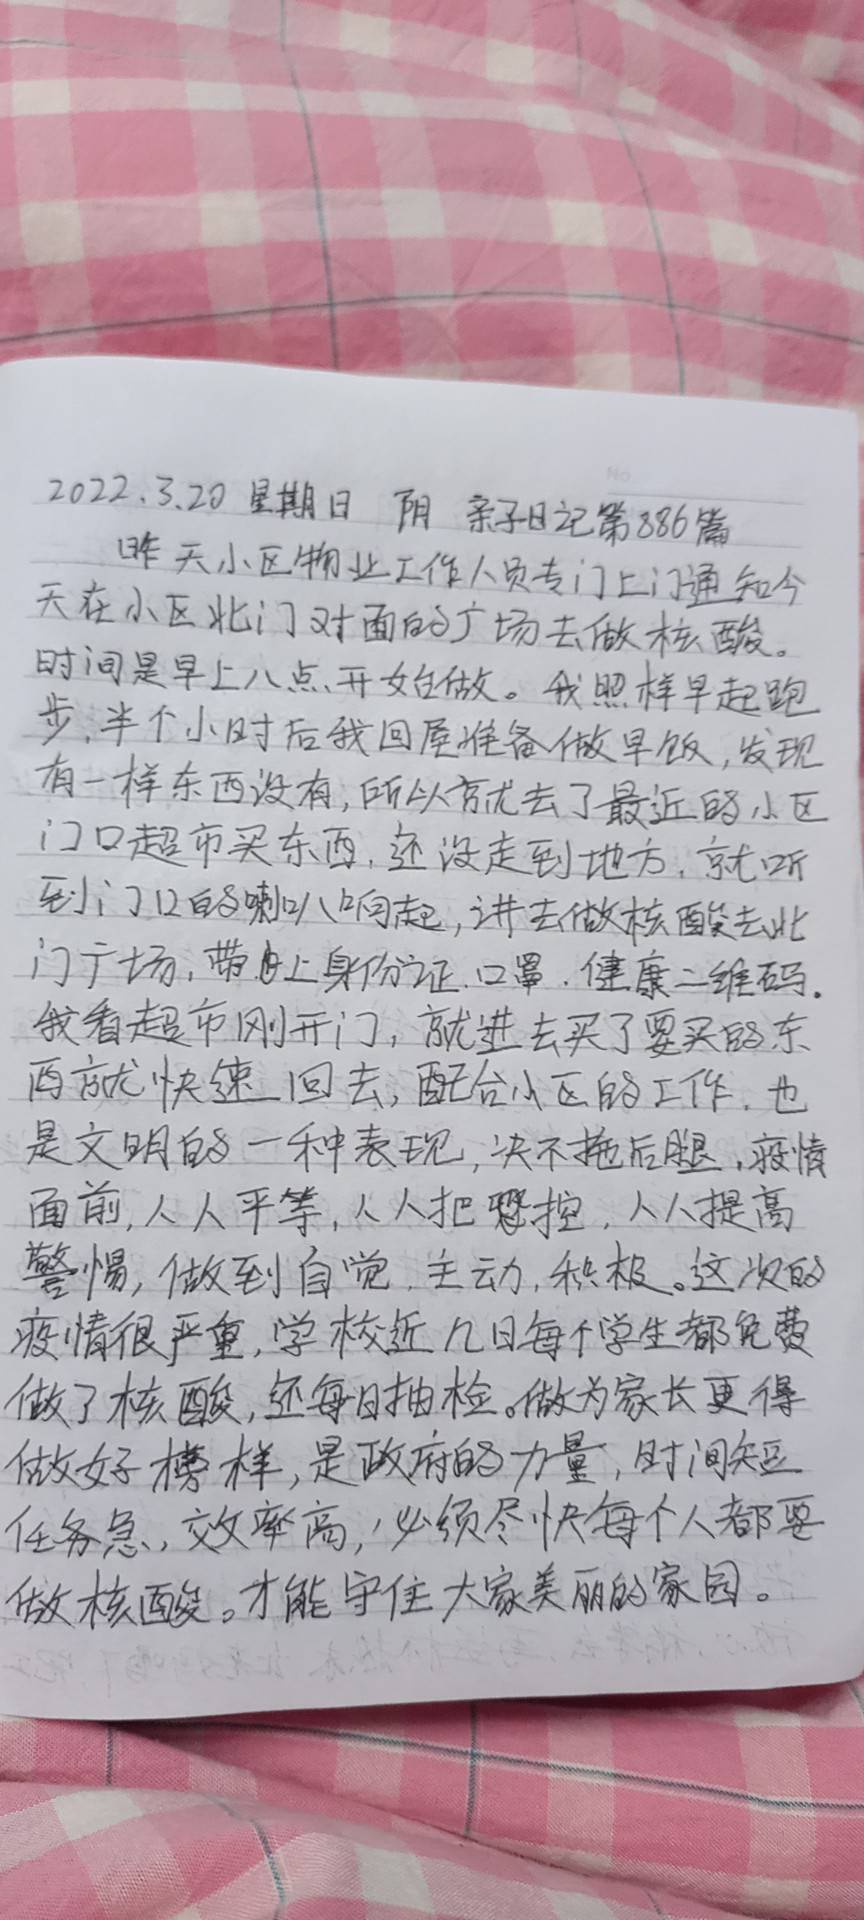 2022.3.20 星期日 阴 亲子日记第886篇
昨天小区物业工作人员专门上门通知今
天在小区北门对面的广场去做核酸。
时间是早上八点开始做。我照样早起跑
步,半个小时后我回屋准备做早饭,发现
有一样东西没有,所以就去了最近的小区
门口超市买东西,还没走到地方,就听
到门口的喇叭响起,讲去做核酸去北
门广场,带上身份证.口罩.健康二维码.
我看超市刚开门,就进去买了要买的东
西就快速回去,配合小区的工作,也
是文明的一种表现,决不拖后腿,疫情
面前,人人平等,人人把控,人人提高
警惕,做到自觉.主动,积极。这次的
疫情很严重,学校近几日每个学生都免费
做了核酸,还每日抽检。做为家长更得
做好榜样,是政府的力量,时间短
任务急,效率高,必须尽快每个人都要
做核酸。才能守住大家美丽的家园。